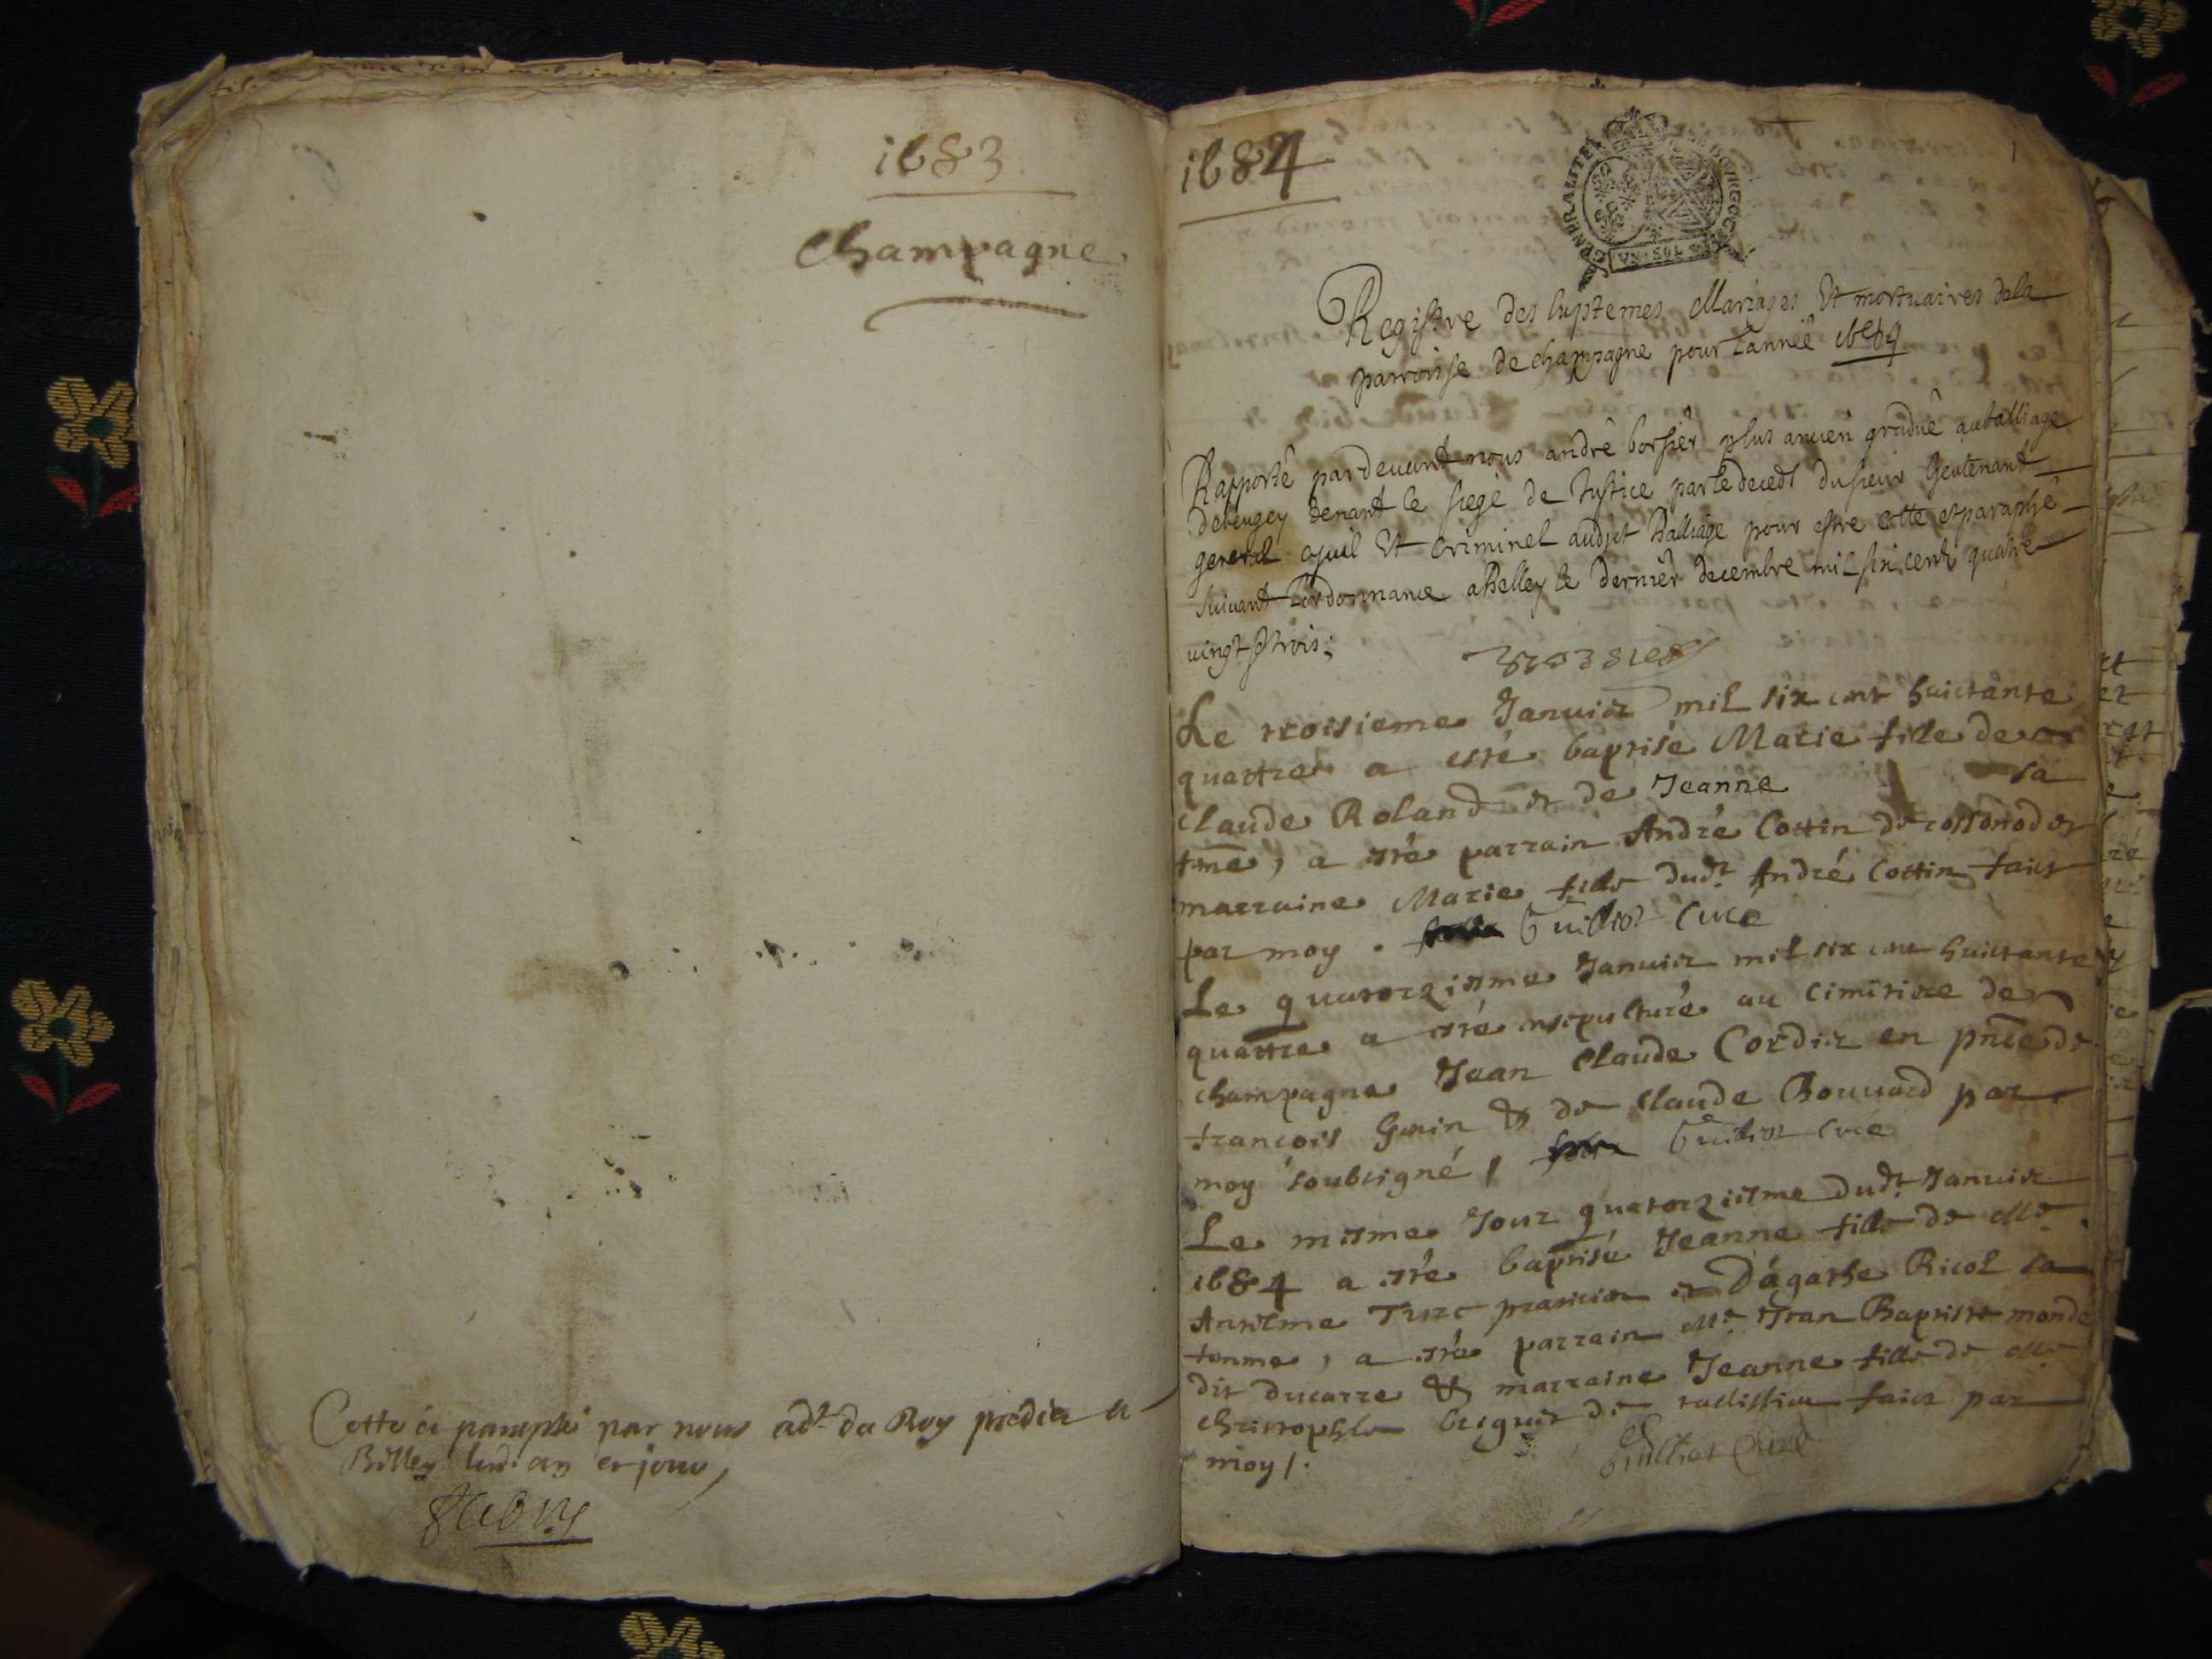 1683
Champagne
Cotté et paraphé par nous adt du Roy
Belley led. an et jour,
1684
GENERALITE DE BOURGOGNE
Registre des baptemes Mariages Et mortuaires dela
parroisse de champagne pour Lannée 1684
Rapporté pardevant nous andré borsier plus ancien gradué au balliage
debeugey tenant le siege de Justice par le deceds du sieur lieutenant
general civil Et criminel audit Balliage pour estre cotté et paraphé
suivant Lordonnance a Belley le dernier decembre mil six cents quatre
vingt trois;
Borsier
Le troisieme Januier mil six cent huictante
quattre a esté baptisée Marie fille de
Claude Roland et de Jeanne sa
fme, a esté parrain André Cottin de cossonod et
marraine Marie fille dudt André Cottin faict
par moy. Guilliot Curé
Le quatorziesme Januier mil six cent huictante
quattre a esté ensepulturé au cimitiere de
champagne Jean Claude Cordier en pnce de
francois Genin & de Claude Bouuard par
moy soubsigné / Guilliot Curé
Le mesme Jour quatorziesme dudt Januier
1684 a esté baptisée Jeanne fille de Me
Anselme Turc praticien et D'agathe Ricol sa
femme, a esté parrain Me Jean Baptiste monde
dit ducarre & marraine Jeanne fille de Me
christophle de faict par
moy /. Guilliot Curé